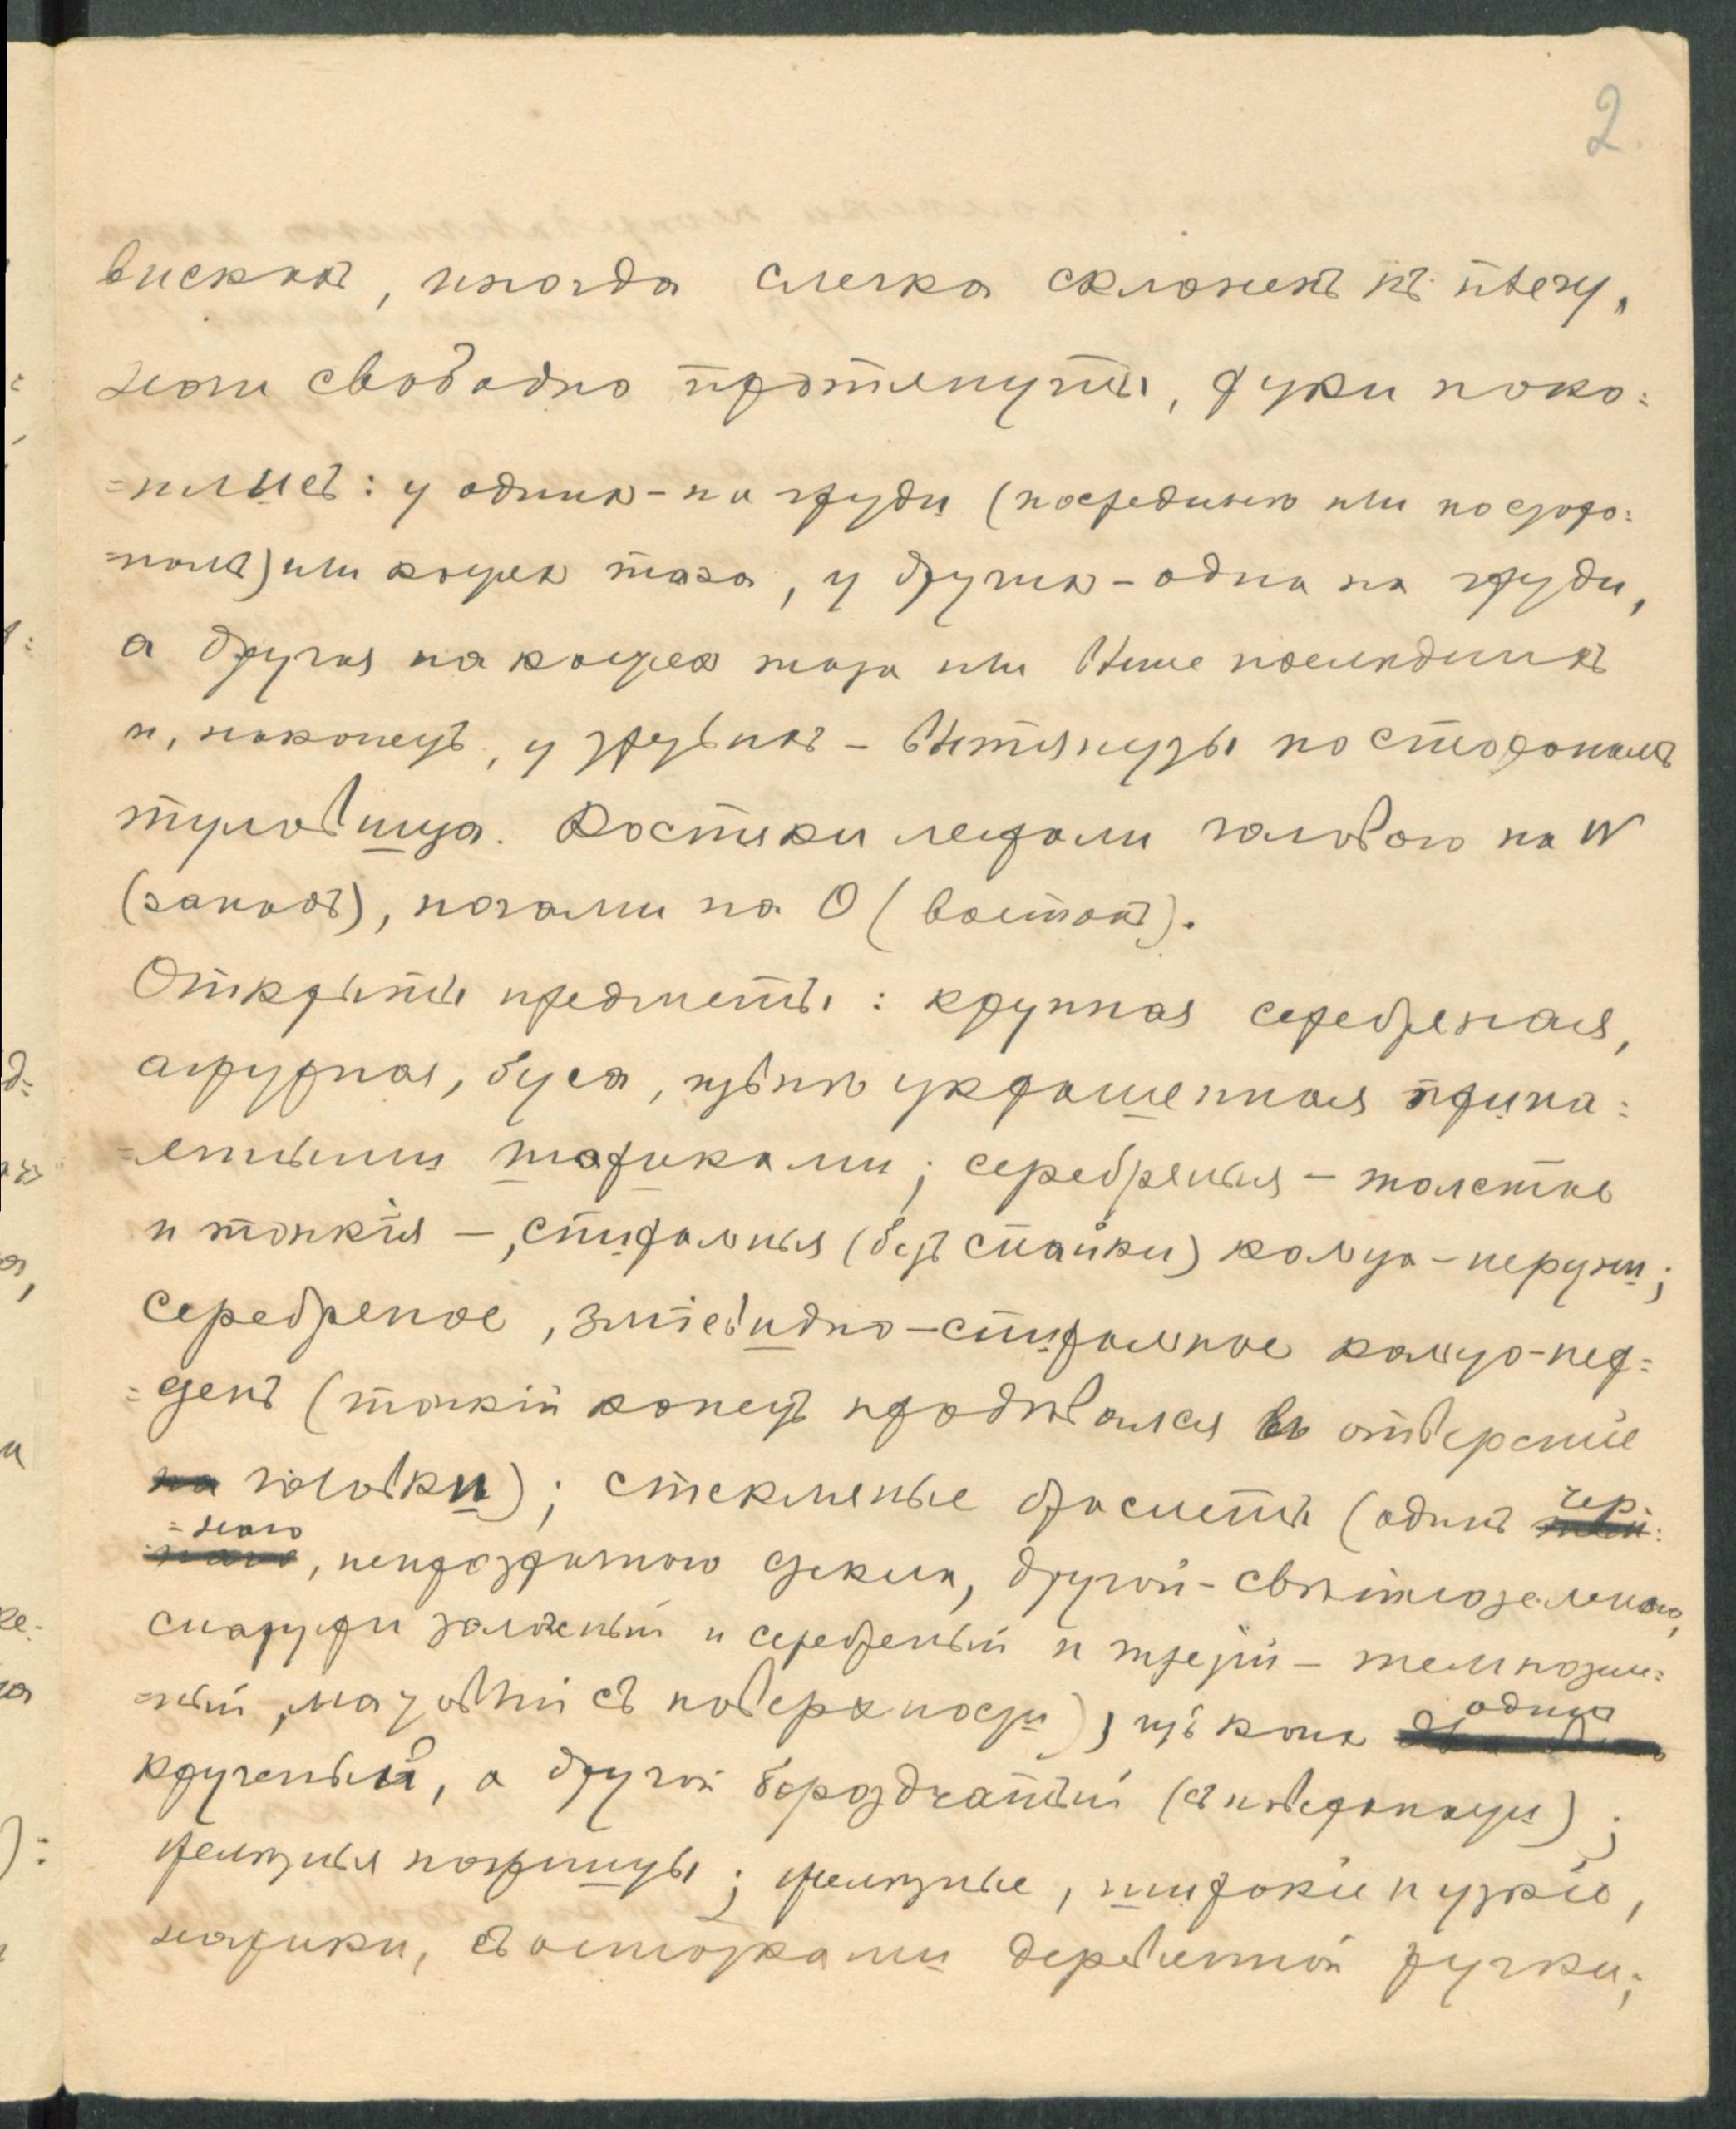 2.
вискомъ, иногда слегка склоненъ къ плечу,
ноги свободно протянуты, руки поко=
=ились: у однихъ – на груди (посрединѣ или по сторо=
=намъ) или костяхъ таза, у другихъ – одна на груди,
а другая на костяхъ таза или выше послѣднихъ
и, наконецъ, у третьихъ – вытянуты по сторонамъ
туловища. Костяки лежали головою на W
(западъ), ногами на O (востокъ).
Открыты предметы: крупная серебреная,
ажурная, буса, цѣпью украшенная припа=
=енными шариками; серебряныя – толстыя
и тонкія –, спиральныя (безъ спайки) кольца-перстни;
серебреное, змѣевидно-спиральное кольцо-пер=
=стень (тонкій конецъ продѣвался въ отверстіе
головки); стеклянные браслеты (одинъ чер=
=наго, непрозрачнаго стекла, другой – свѣтлозеленаго,
снаружи золоченый и серебреный и третій – темнозеле=
=ный, матовый съ поверхности), изъ коихъ одинъ
крученый, а другой бороздчатый (съ поверхности);
желѣзныя ножницы; желѣзные, широкіе и узкіе,
ножики, съ остатками деревянной ручки;